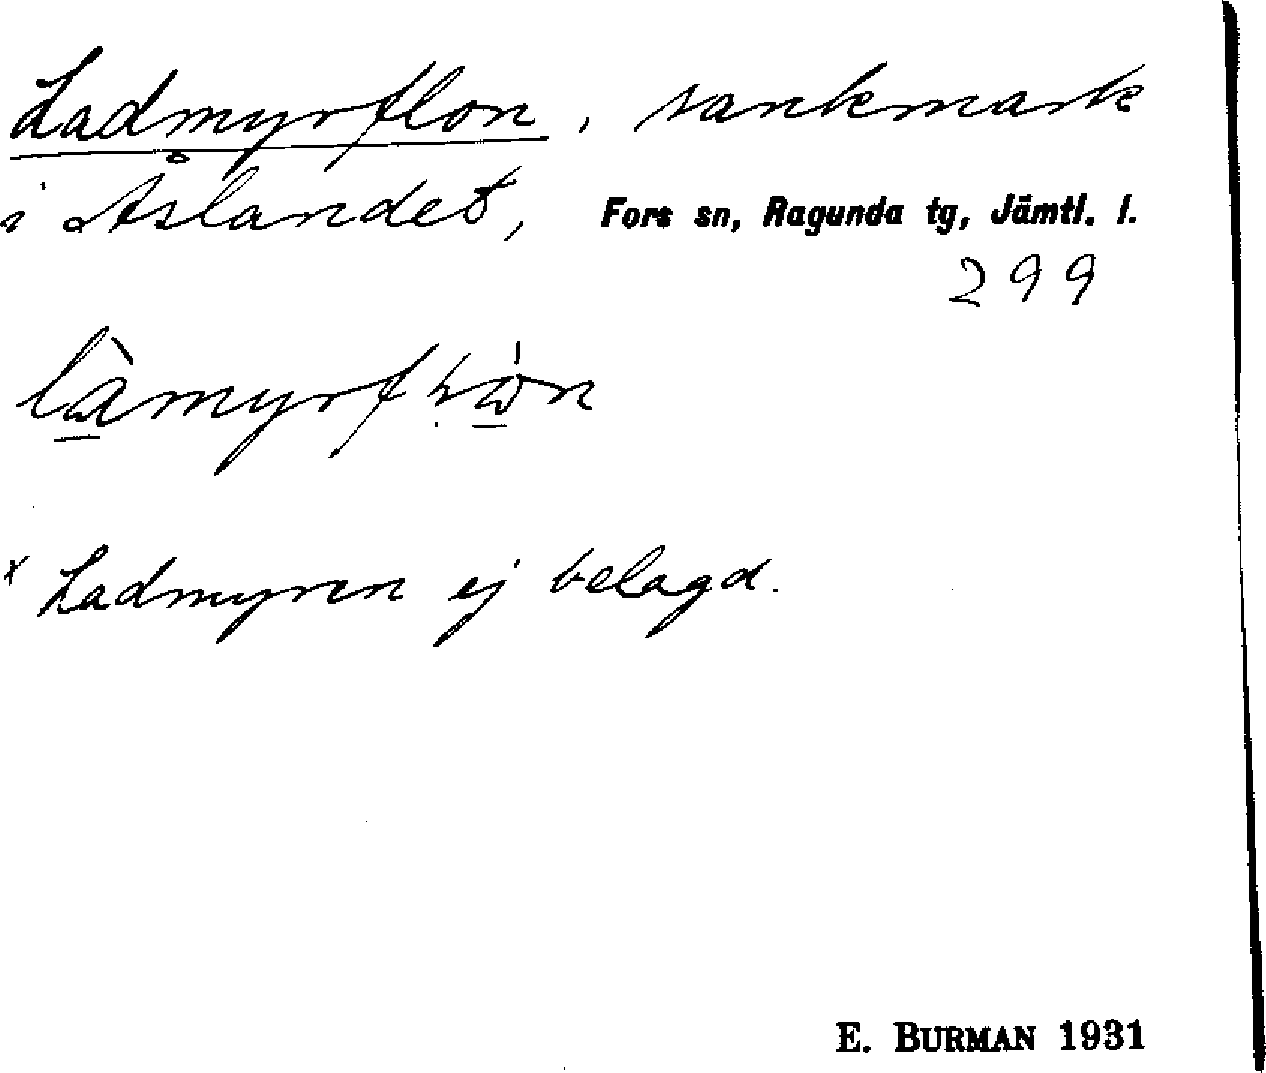 Ladmyrflon, sankmark
i Åslandet, Fors sn, Ragunda tg, Jämtl. l.
299
x Ladmyren ej belagd.
E. BURMAN 1931